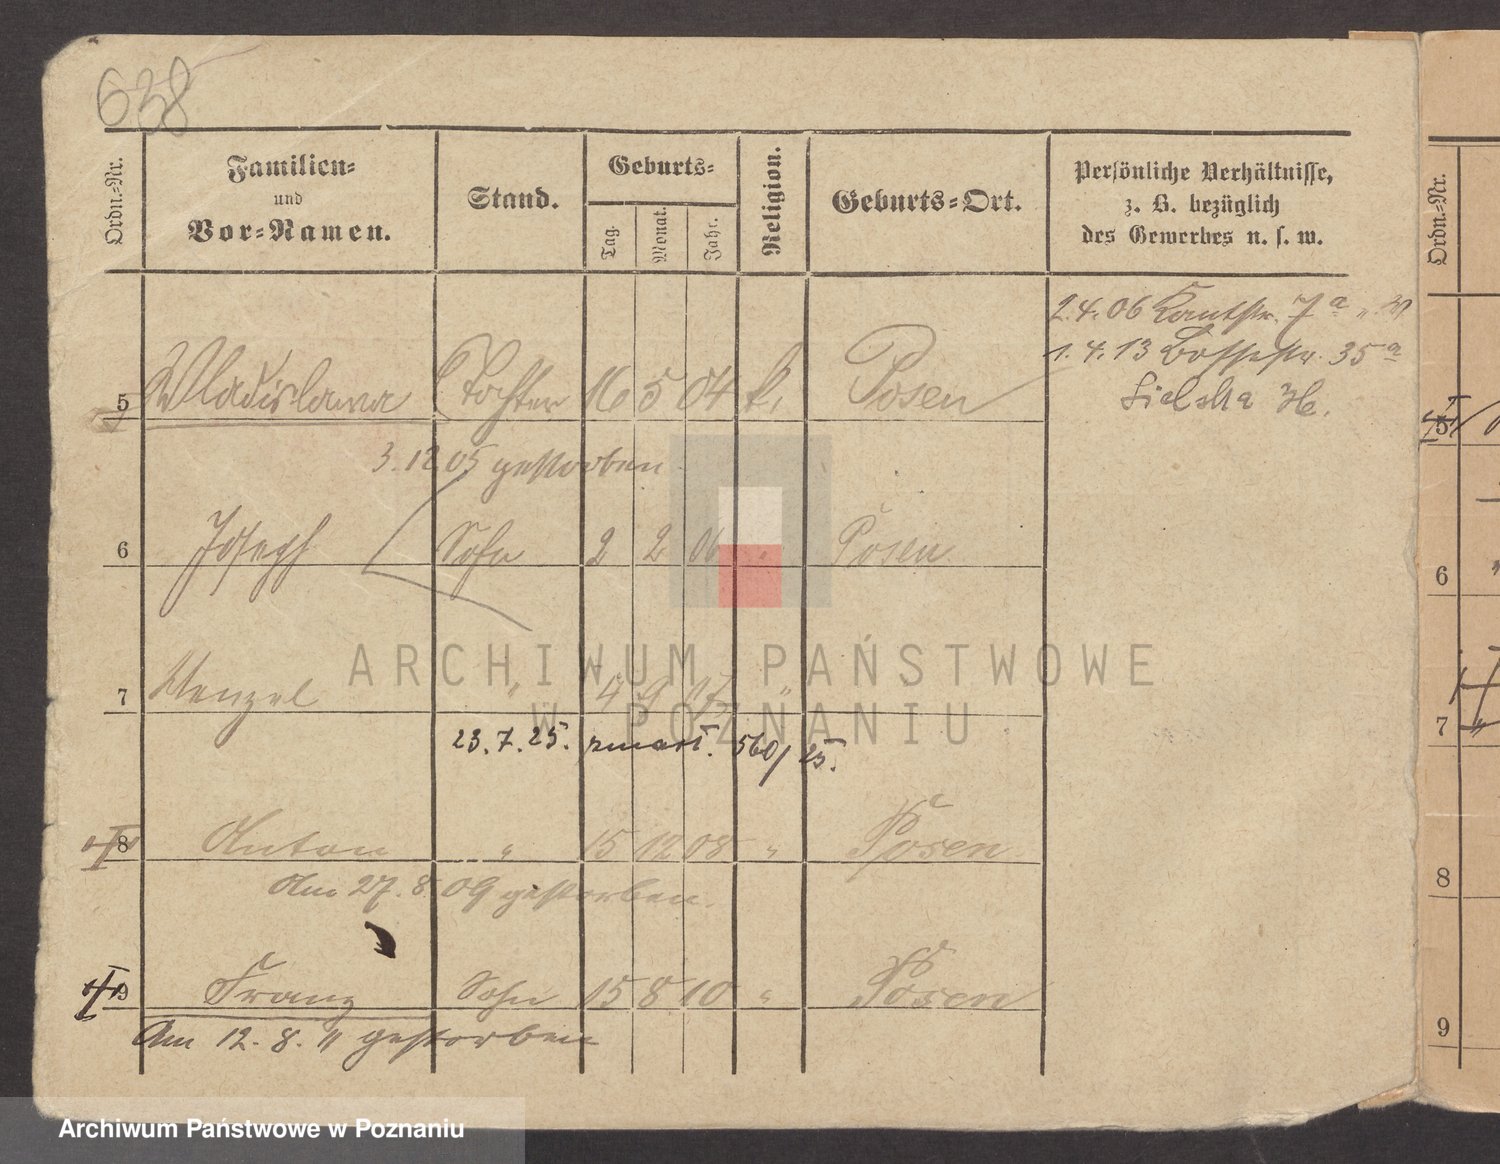 638
Ordn.-Nr.
Familien-
und
Vor-Namen.
Stand.
Geburts-
Tag.
Monat.
Jahr.
Religion.
Geburts-Ort.
Persönliche Verhältnisse,
z. B. bezüglich
des Gewerbes u. s. w.
2.4.06 Kantstr. 7a
1.4.13 Bosestr. 35a
Sielska
5 Wladislawa Tochter 16 5 04 k. Posen
3.12 05 gestorben
6 Joseph Sohn 2 2 06 " Posen
7 Wenzel " 4 9 07 "
23.7.25. zmarł. 560/25.
8 Anton " 15 12 08 " Posen
Am 27. 8. 09 gestorben.
9 Franz Sohn 15 8 10 " Posen
Am 12. 8. 11 gestorben
Ordn.-Nr.
5
6
7
8
9
ARCHIWUM PAŃSTWOWE
W POZNANIU
Archiwum Państwowe w Poznaniu